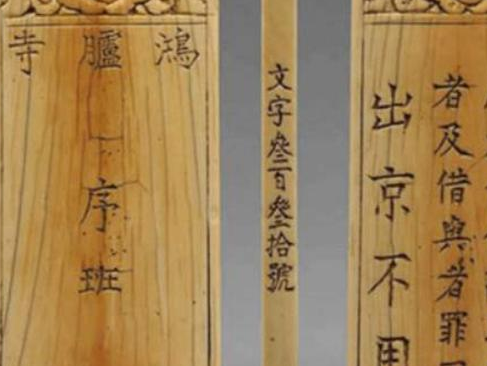 鴻臚寺
序班
文字叄百叄拾號
者及借與者罪
出京不用